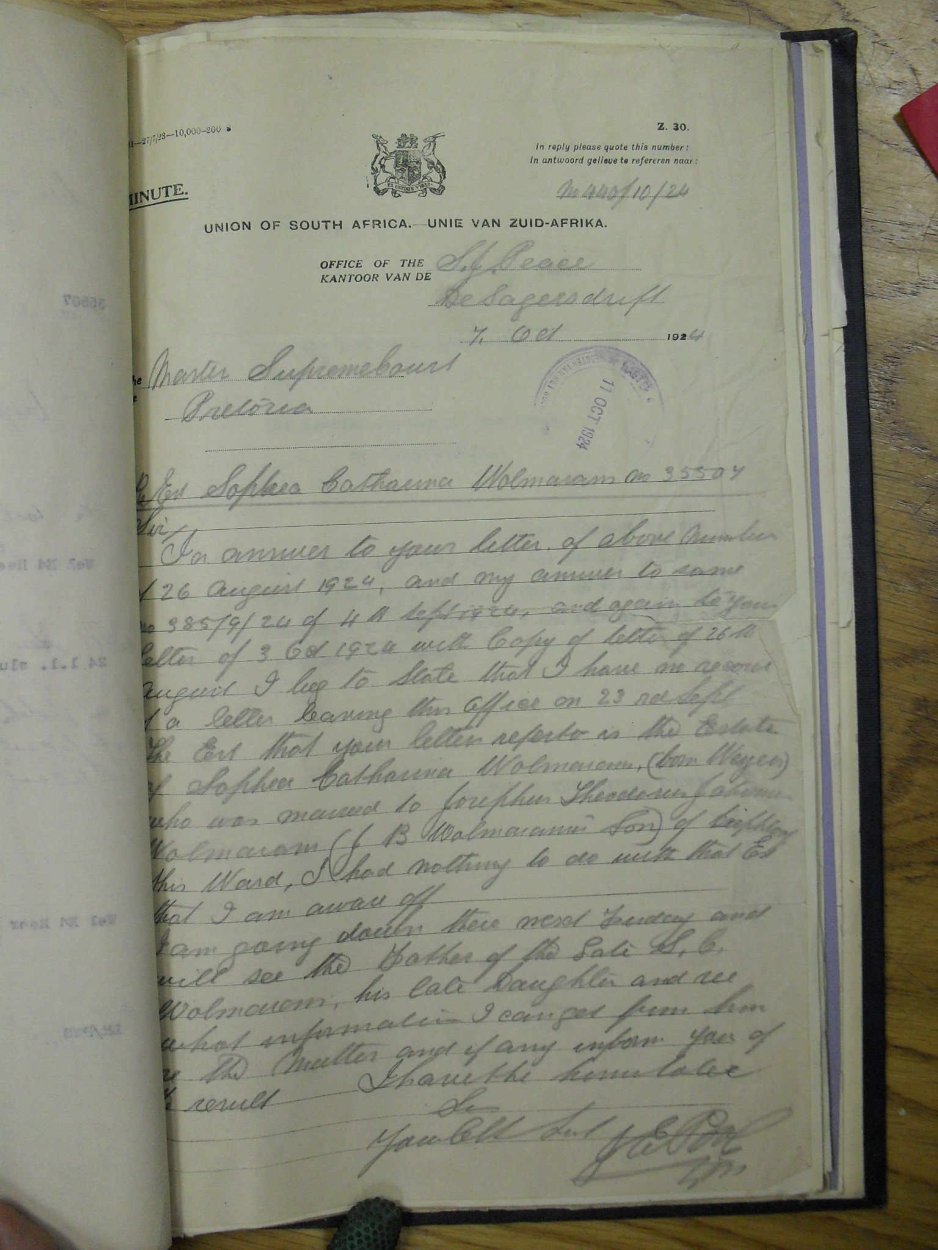 —27/7/23—10,000—200
Z. 30.
In reply please quote this number:
In antwoord gelieve te refereren naar:
MINUTE.
M 440/10/24
UNION OF SOUTH AFRICA.—UNIE VAN ZUID-AFRIKA.
OFFICE OF THE
KANTOOR VAN DE
S.J. Peace
De Lagersdrift
7. Oct 1924
Master Supreme Court
Pretoria
11 OCT 1924
Est Sophea Catharina Wolmarans No 35507
Sir
In answer to your letter, of above number
26 August 1924, and my answer to same
No 385/9/24 of 4th Sept 1924, and again to your
letter of 3 Oct 1924 with Copy of letter of 26th
August I beg to State that I have no record
of a letter leaving this office on 23rd Sept
The Est that your letter refers to is the Estate
of Sophea Catharina Wolmarans, (born Weyers)
who was married to Josephus Theodorus
Wolmarans (J B Wolmarans's Son) of
this Ward, I had nothing to do with that Est
that I am aware off
I am going down there next and
will see the Father of the Late S. C.
Wolmarans, his late Daughter and see
what information I can get from him
re the Matter and if any inform You of
the result I have the honour to be
Sir
Your Obt Svt